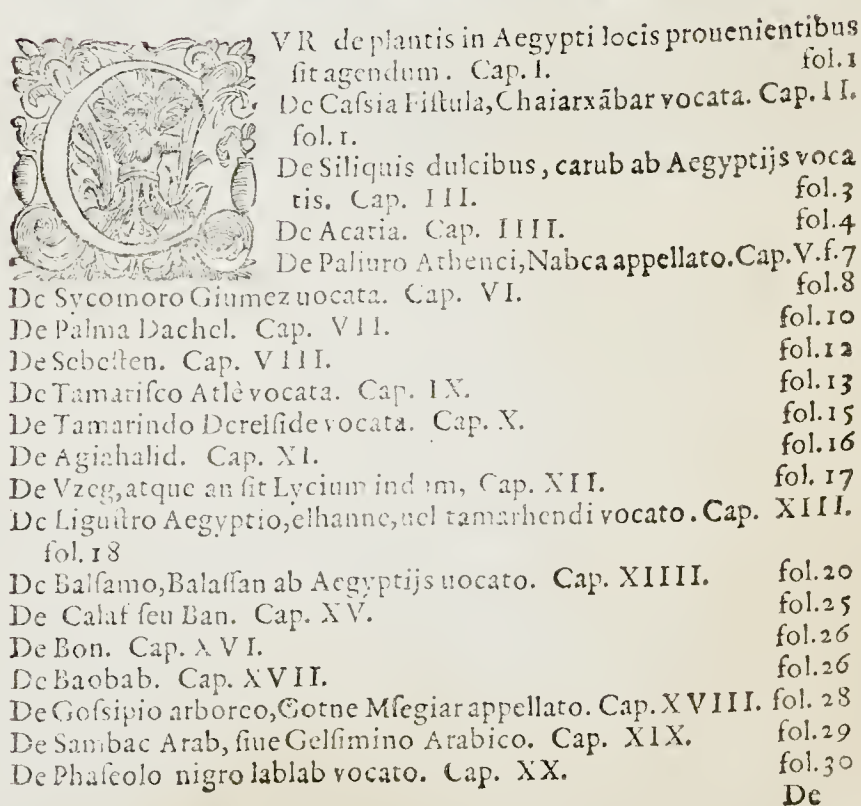 CVR de plantis in Aegypti locis prouenientibus
ſit agendum. Cap. I. fol. 1
De Caſsia Fiſtula, Chaiarxābar vocata. Cap. II.
fol. 1.
De Siliquis dulcibus, carub ab Aegyptijs voca
tis. Cap. III. fol. 3
De Acatia. Cap. IIII. fol. 4
De Paliuro Athenei, Nabca appellato. Cap. V. f. 7
De Sycomoro Giumez uocata. Cap. VI. fol. 8
De Palma Dachel. Cap. VII. fol. 10
De Sebeſten. Cap. VIII. fol. 12
De Tamariſco Atlè vocata. Cap. IX. fol. 13
De Tamarindo Derelſide vocata. Cap. X. fol. 15
De Agiahalid. Cap. XI. fol. 16
De Vzeg, atque an ſit Lycium indum, Cap. XII. fol. 17
De Liguſtro Aegyptio, elhanne, uel tamarhendi vocato. Cap. XIII.
fol. 18
De Balſamo, Balaſſan ab Aegyptijs uocato. Cap. XIIII. fol. 20
De Calaf ſeu Ban. Cap. XV. fol. 25
De Bon. Cap. XVI. fol. 26
De Baobab. Cap. XVII. fol. 26
De Goſsipio arboreo, Gotne Mſegiar appellato. Cap. XVIII. fol. 28
De Sambac Arab, ſiue Gelſimino Arabico. Cap. XIX. fol. 29
De Phaſeolo nigro lablab vocato. Cap. XX. fol. 30
De